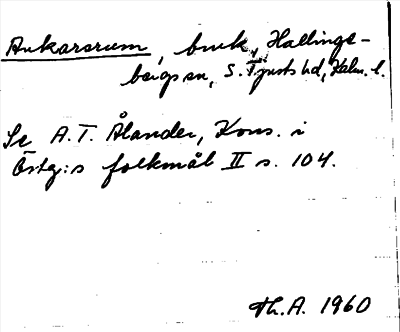 Ankarsrum, bruk, Hallings-
bergs sn, S. Tjusts hd, Kalm. l.
Se A.T. Ålander, Kons. i
Östg:s folkmål II s. 104.
Th.A. 1960